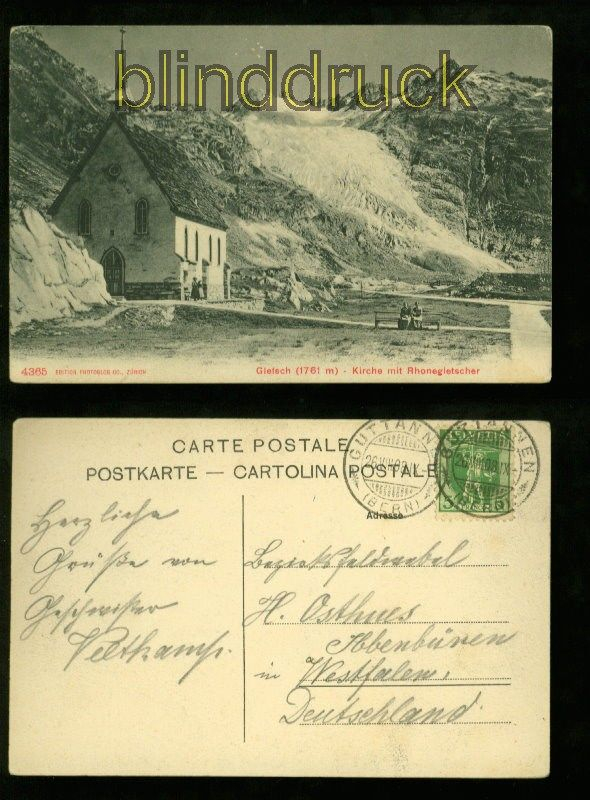 blinddruck
4365 EDITION PHOTOGLOB CO., ZÜRICH
Gletsch (1761 m) - Kirche mit Rhonegletscher
CARTE POSTALE
POSTKARTE — CARTOLINA POSTALE
GUTTANNEN
(BERN)
GUTTANNEN
Adresse
Herzliche
Grüße von
Geschwister
Veltkamp.
Bezirksfeldwebel
H. Osthues
Ibbenbüren
in Westfalen,
Deutschland.